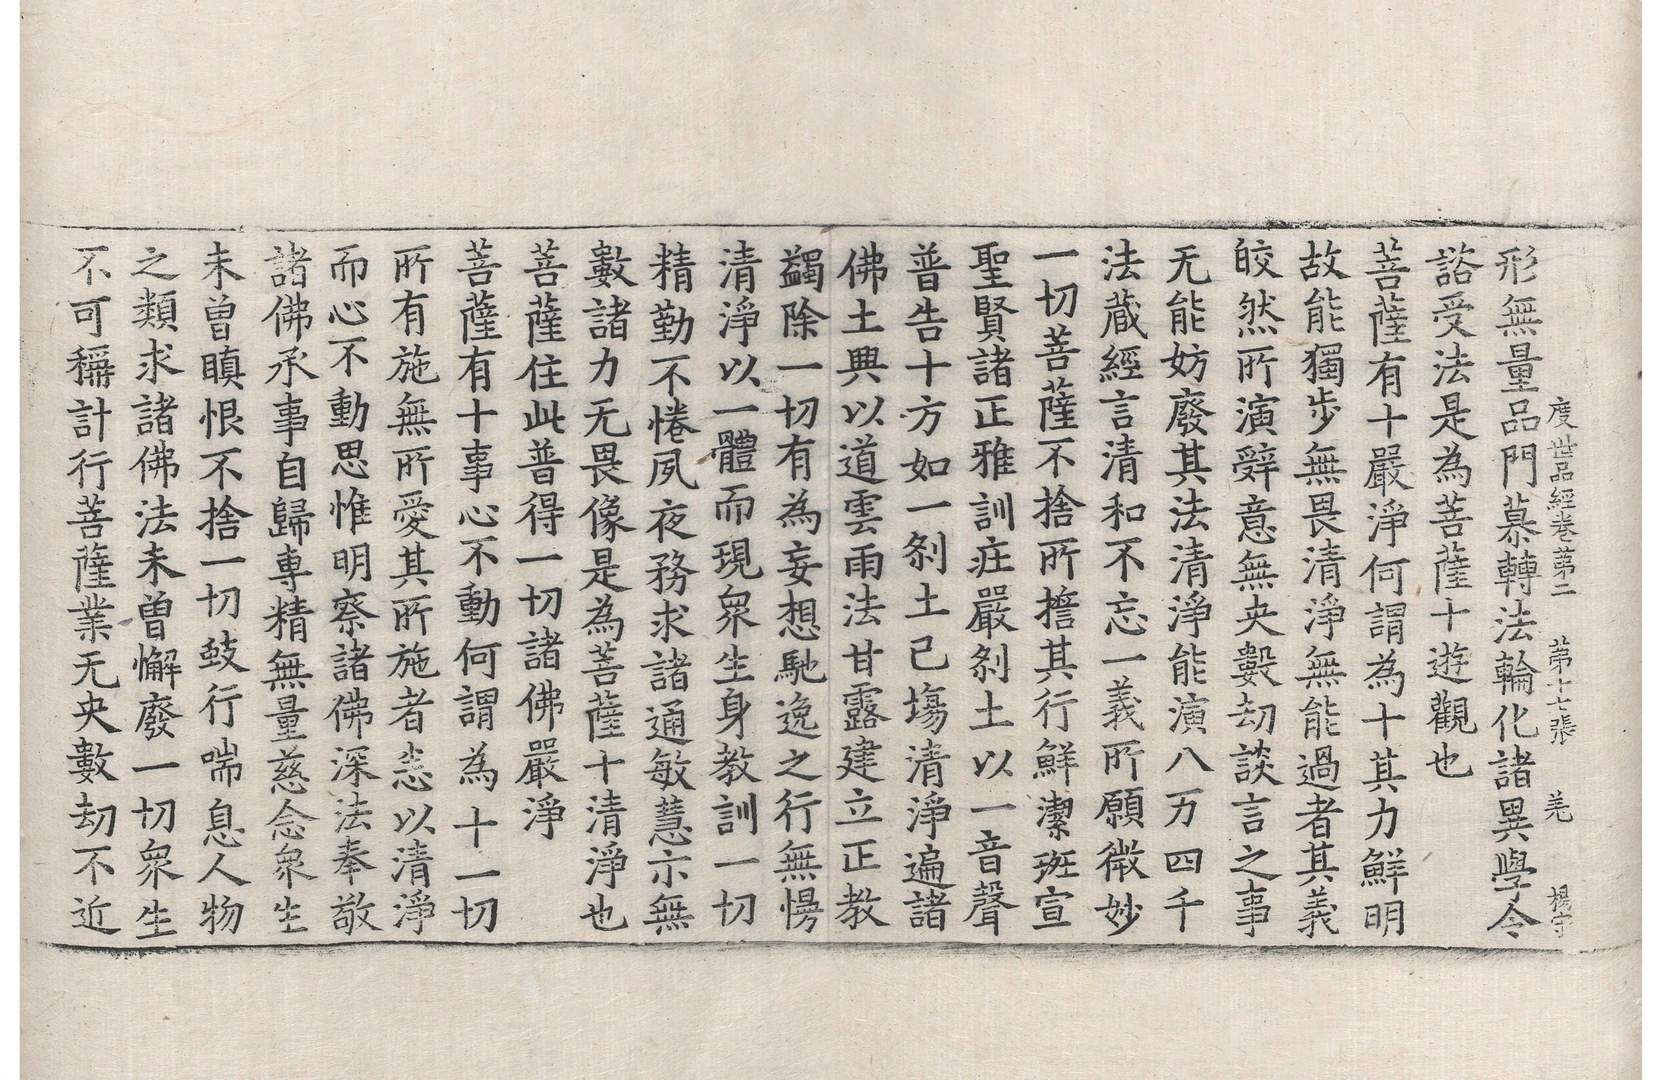 度世品經卷苐二 苐十七張 羌 楊守
形無量品門慕轉法輪化諸異學令
諮受法是為菩薩十遊觀也
菩薩有十嚴淨何謂為十其力鮮明
故能獨步無畏清淨無能過者其義
皎然所演辭意無央數劫談言之事
无能妨廢其法清淨能演八万四千
法蔵經言清和不忘一義所願微妙
一切菩薩不捨所擔其行鮮潔班宣
聖賢諸正雅訓庄嚴刹土以一音聲
普告十方如一刹土已塲清淨遍諸
佛土興以道雲雨法甘露建立正教
蠲除一切有為妄想馳逸之行無慢
清淨以一體而現衆生身教訓一切
精勤不惓夙夜務求諸通敏慧示無
數諸力无畏像是為菩薩十清淨也
菩薩住此普得一切諸佛嚴淨
菩薩有十事心不動何謂為十一切
所有施無所愛其所施者恣以清淨
而心不動思惟明察諸佛深法奉敬
諸佛承事自歸專精無量慈念衆生
未曾瞋恨不捨一切蚑行喘息人物
之類求諸佛法未曾懈廢一切衆生
不可稱計行菩薩業无央數劫不近